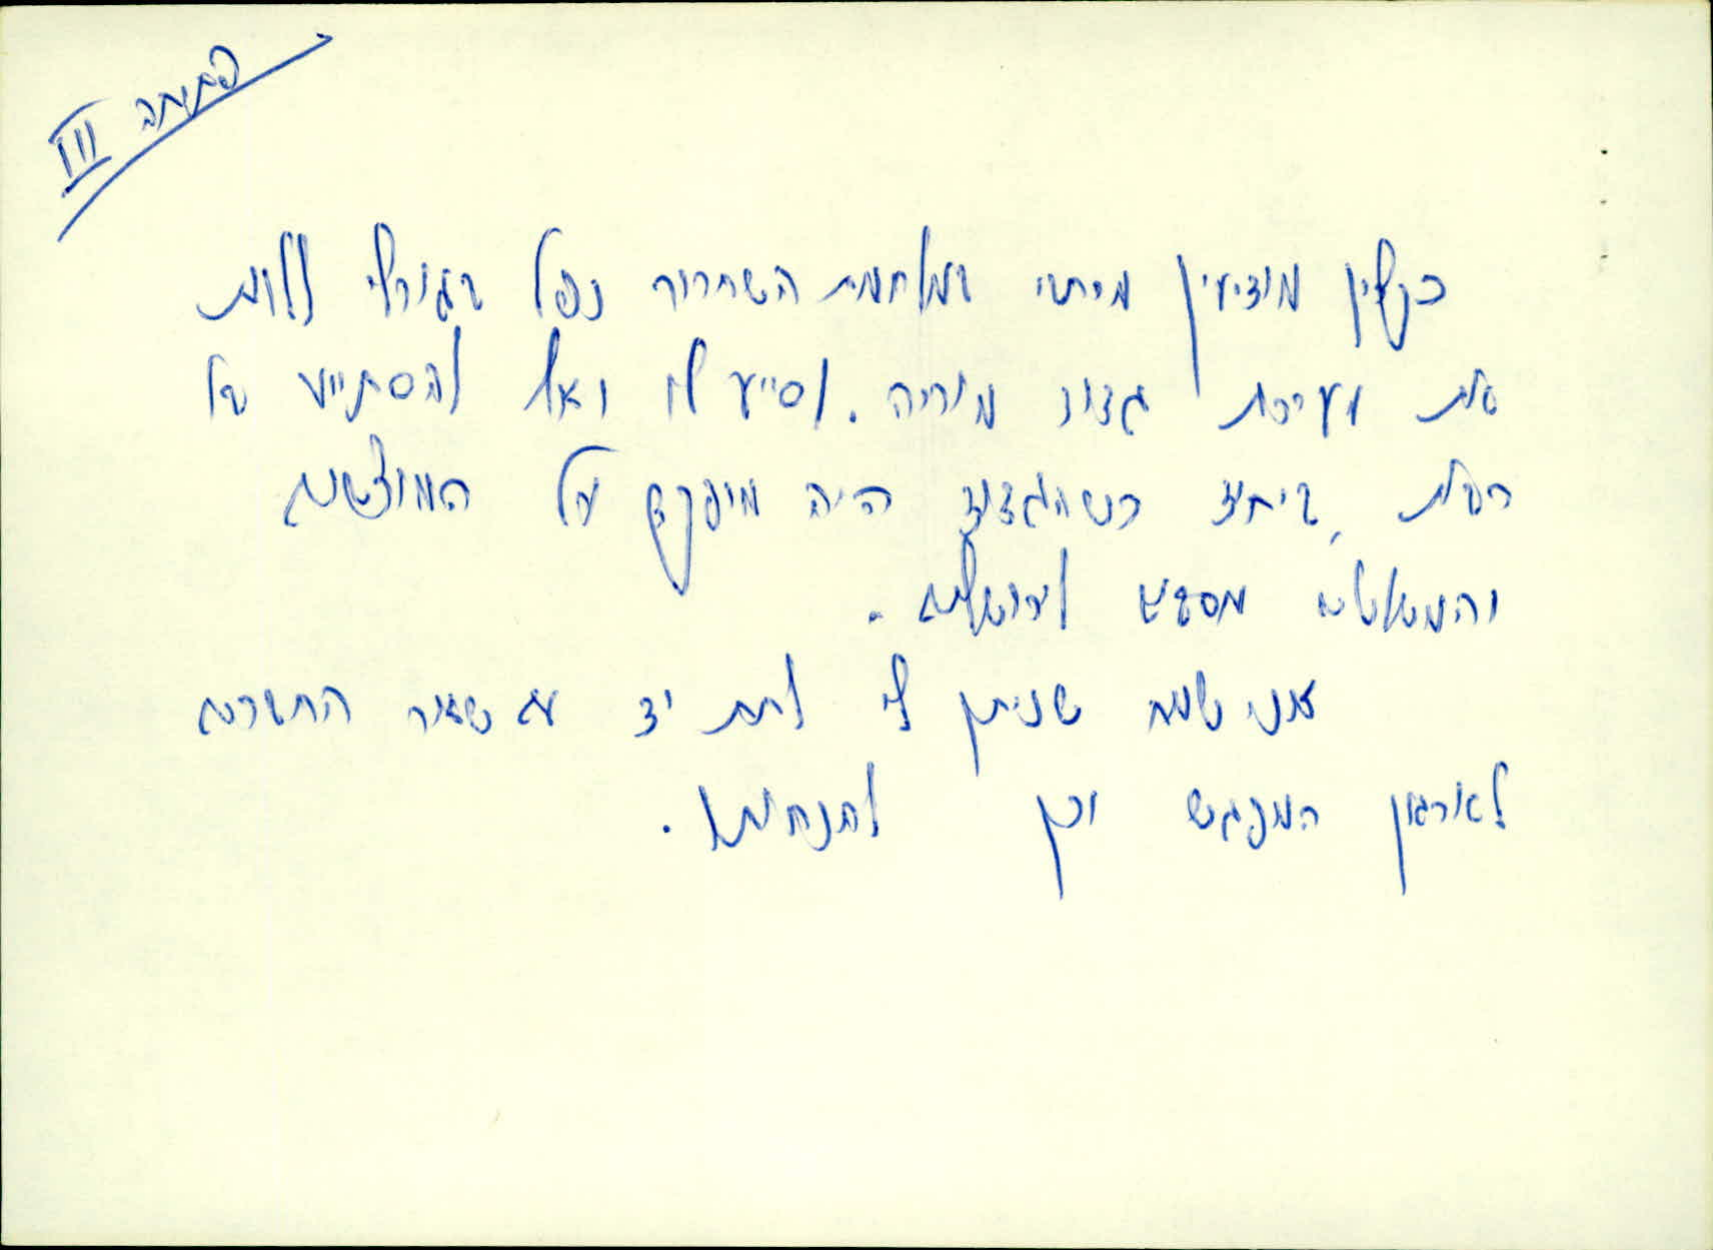 פתיחה III
כקצין מודיעין מחטי במלחמת השחרור נפל בגורלי ללוות
את מערכת גדוד מוריה. לסייע לו ואף להסתייע על
רקע, ביחוד כשהגדוד היה מופקד על המוצבים
והמשלטים מסביב לירושלים.
אני שמח שניתן לי לתת יד עם שאר החברים
לארגון המפגש וכן להנחותו.